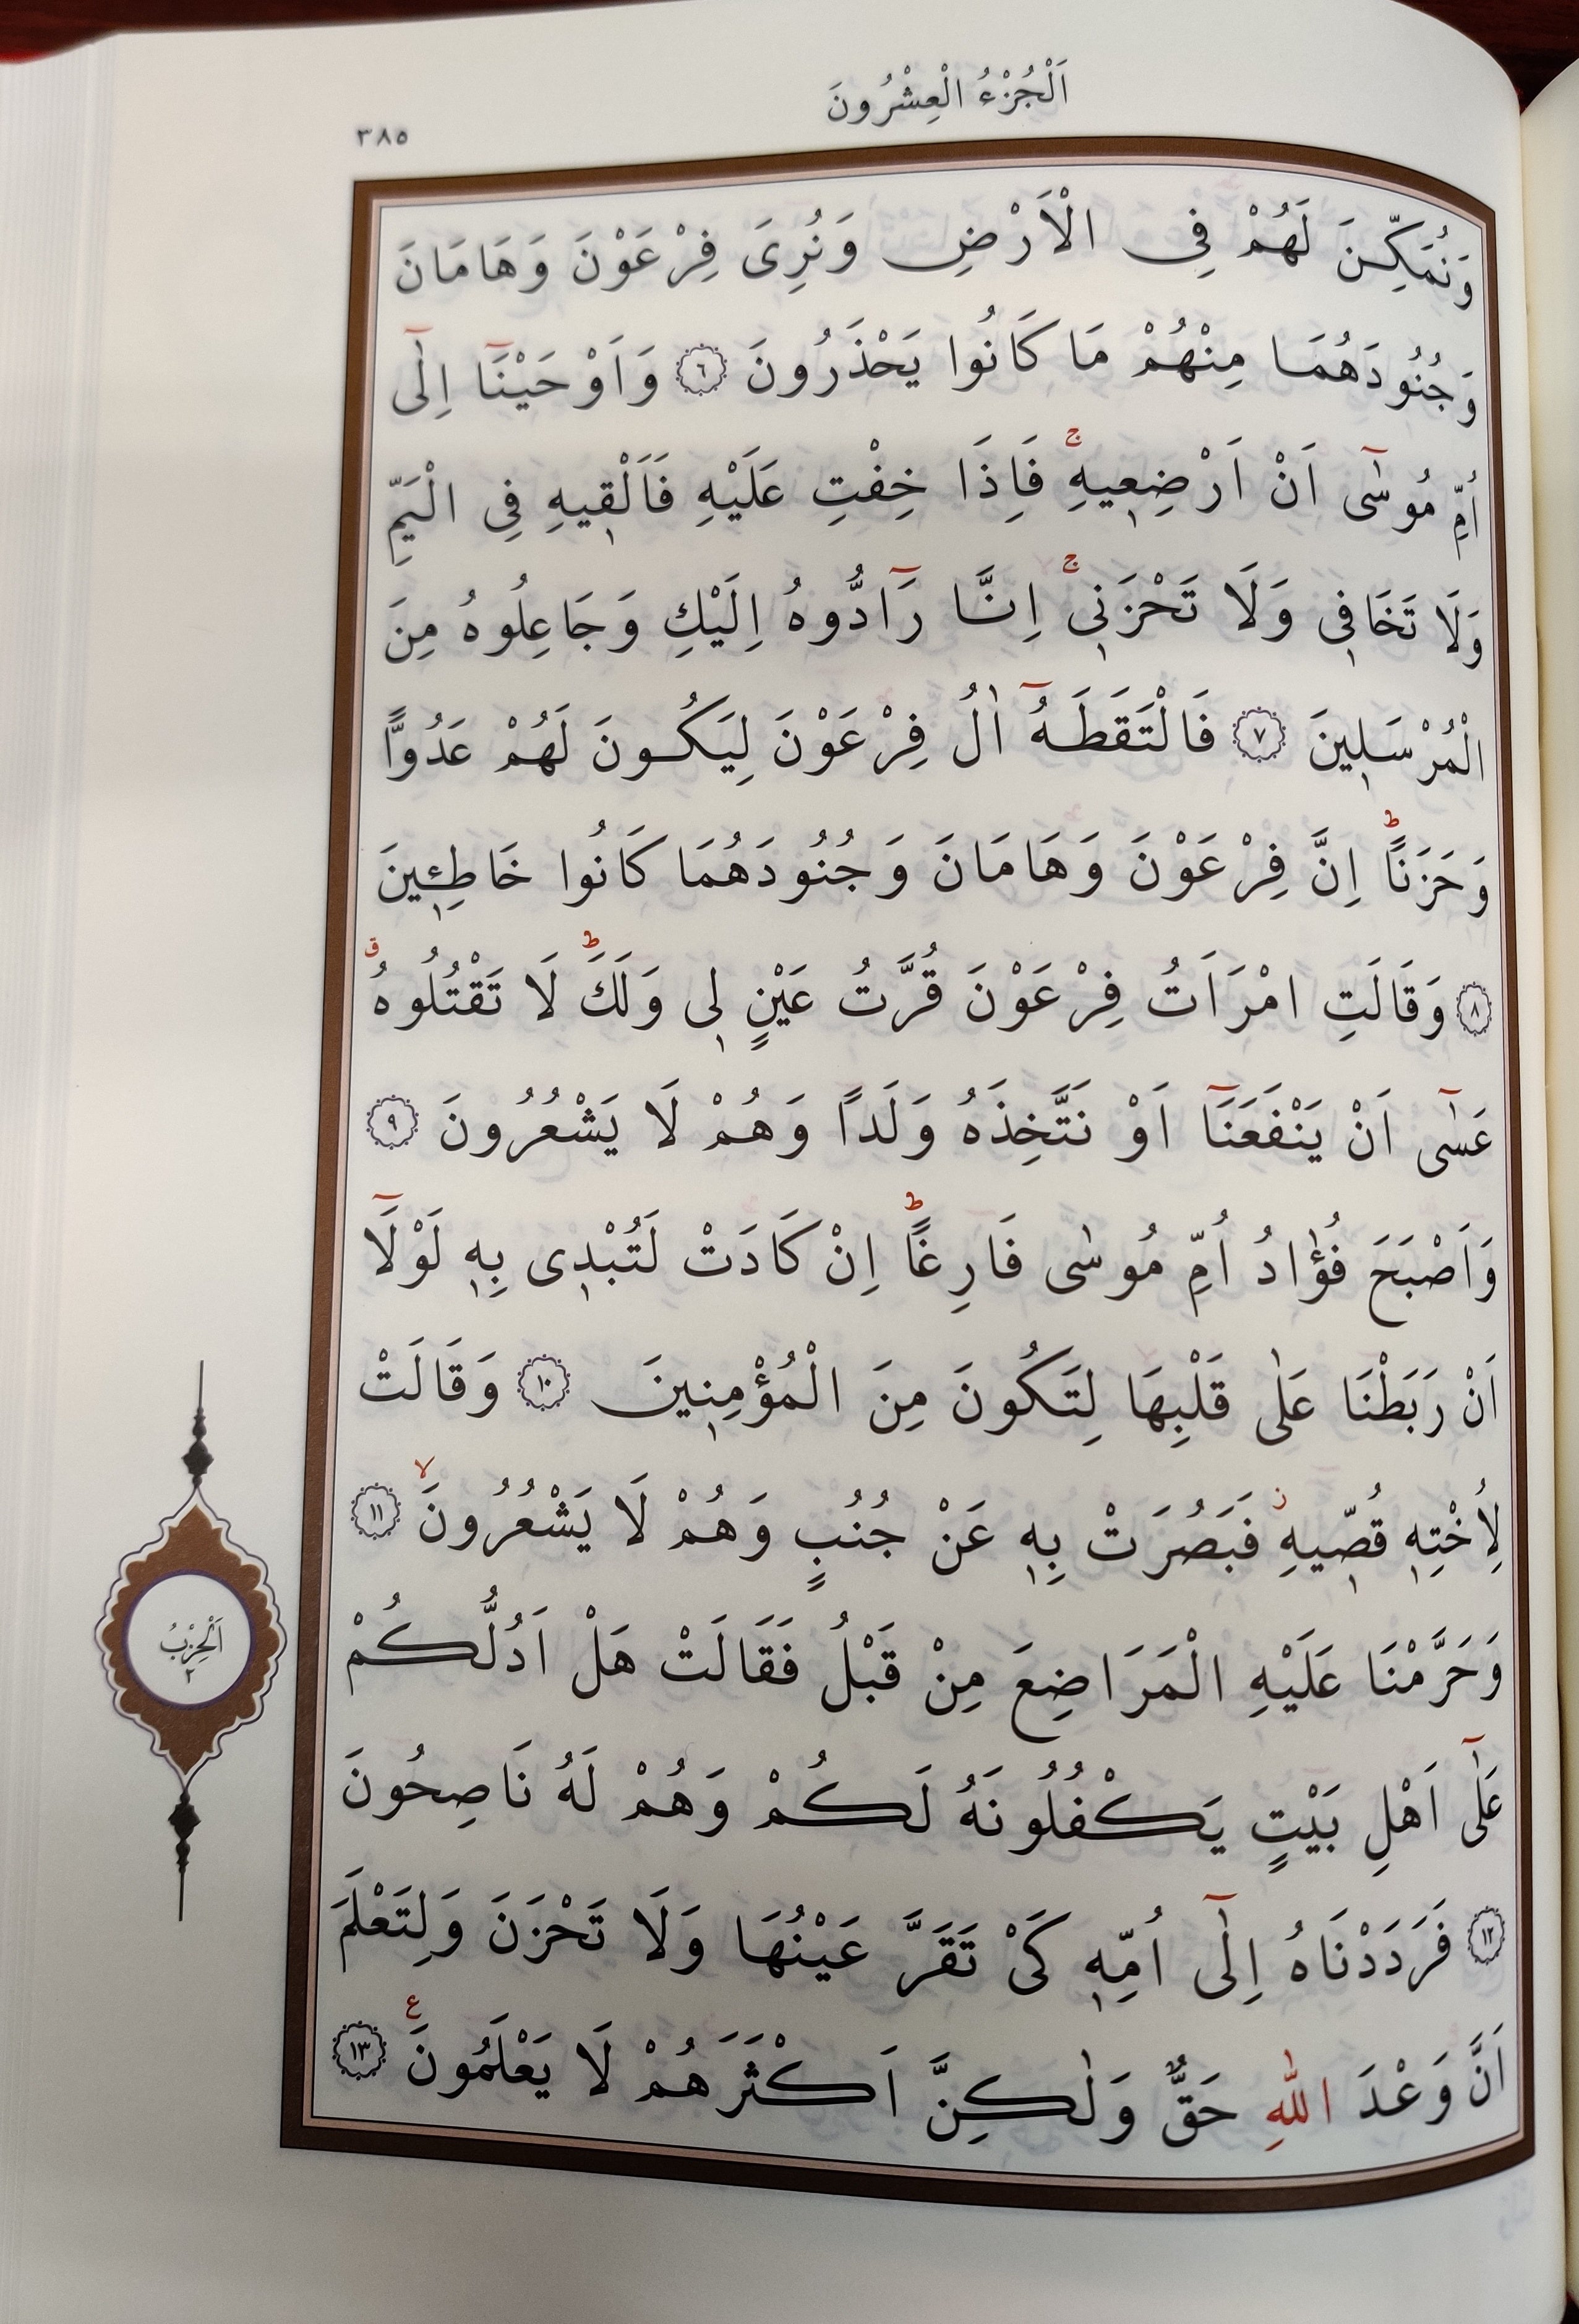 اَلْجُزْءُ الْعِشْرُونَ
٣٨٥
وَنُمَكِّنَ لَهُمْ فِى الْاَرْضِ وَنُرِىَ فِرْعَوْنَ وَهَامَانَ
وَجُنُودَهُمَا مِنْهُمْ مَا كَانُوا يَحْذَرُونَ ﴿٦﴾ وَاَوْحَيْنَٓا اِلٰٓى
اُمِّ مُوسٰٓى اَنْ اَرْضِعٖيهِۚ فَاِذَا خِفْتِ عَلَيْهِ فَاَلْقٖيهِ فِى الْيَمِّ
وَلَا تَخَافٖى وَلَا تَحْزَنٖىۚ اِنَّا رَٓادُّوهُ اِلَيْكِ وَجَاعِلُوهُ مِنَ
الْمُرْسَلٖينَ ﴿٧﴾ فَالْتَقَطَهُٓ اٰلُ فِرْعَوْنَ لِيَكُونَ لَهُمْ عَدُوًّا
وَحَزَنًاؕ اِنَّ فِرْعَوْنَ وَهَامَانَ وَجُنُودَهُمَا كَانُوا خَاطِـٖٔينَ
﴿٨﴾ وَقَالَتِ امْرَاَتُ فِرْعَوْنَ قُرَّتُ عَيْنٍ لٖى وَلَكَؕ لَا تَقْتُلُوهُ ق
عَسٰٓى اَنْ يَنْفَعَنَٓا اَوْ نَتَّخِذَهُ وَلَدًا وَهُمْ لَا يَشْعُرُونَ ﴿٩﴾
وَاَصْبَحَ فُؤٰادُ اُمِّ مُوسٰى فَارِغًاؕ اِنْ كَادَتْ لَتُبْدٖى بِهٖ لَوْلَٓا
اَنْ رَبَطْنَا عَلٰى قَلْبِهَا لِتَكُونَ مِنَ الْمُؤْمِنٖينَ ﴿١٠﴾ وَقَالَتْ
لِاُخْتِهٖ قُصّٖيهِ ز فَبَصُرَتْ بِهٖ عَنْ جُنُبٍ وَهُمْ لَا يَشْعُرُونَۙ ﴿١١﴾
وَحَرَّمْنَا عَلَيْهِ الْمَرَاضِعَ مِنْ قَبْلُ فَقَالَتْ هَلْ اَدُلُّكُمْ
عَلٰٓى اَهْلِ بَيْتٍ يَكْفُلُونَهُ لَكُمْ وَهُمْ لَهُ نَاصِحُونَ
﴿١٢﴾ فَرَدَدْنَاهُ اِلٰٓى اُمِّهٖ كَىْ تَقَرَّ عَيْنُهَا وَلَا تَحْزَنَ وَلِتَعْلَمَ
اَنَّ وَعْدَ اللّٰهِ حَقٌّ وَلٰكِنَّ اَكْثَرَهُمْ لَا يَعْلَمُونَ ع ﴿١٣﴾
اَلْحِزْبُ
٢